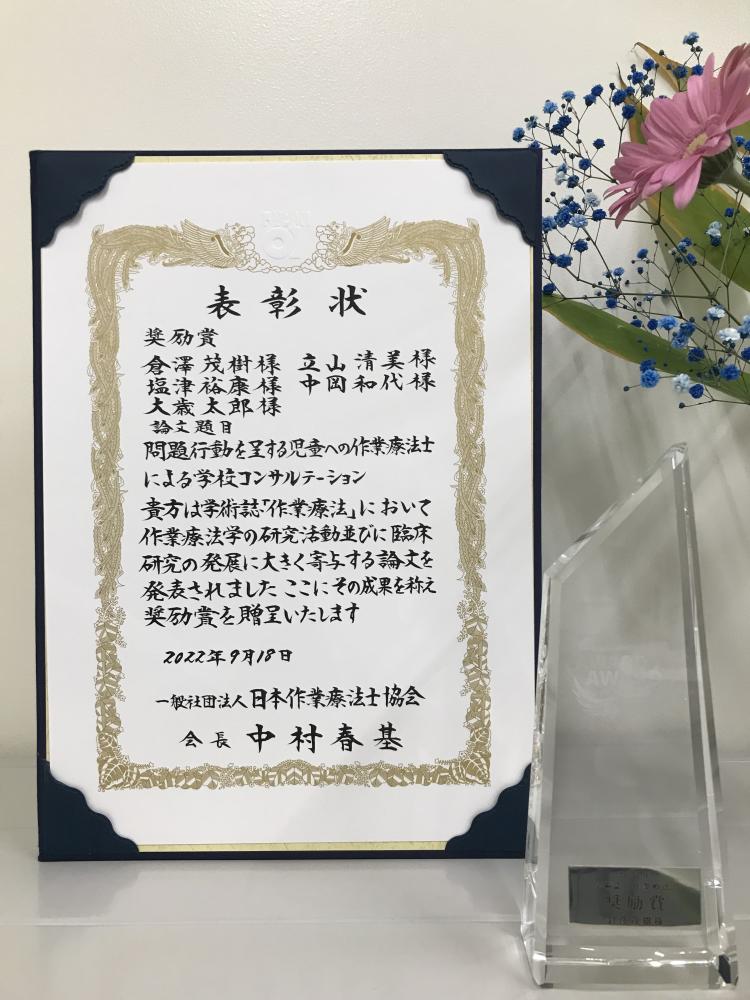 表彰状
奨励賞
倉澤茂樹様 立山清美様
塩津裕康様 中岡和代様
大歳太郎様
論文題目
問題行動を呈する児童への作業療法士
による学校コンサルテーション
貴方は学術誌「作業療法」において
作業療法学の研究活動並びに臨床
研究の発展に大きく寄与する論文を
発表されました ここにその成果を称え
奨励賞を贈呈いたします
2022年9月18日
一般社団法人 日本作業療法士協会
会長 中村春基
奨励賞